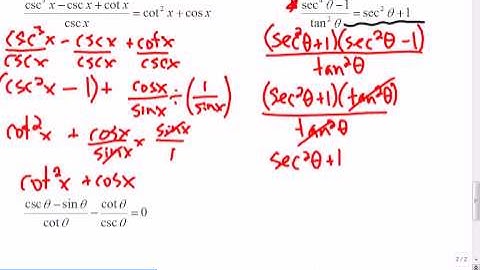 csc³x − csc x + cot x / csc x = cot² x + cos x
csc³x/cscx − cscx/cscx + cotx/cscx
(csc²x − 1) + cosx/sinx ÷ (1/sinx)
cot²x + cosx/sinx × sinx/1
cot²x + cosx
csc θ − sin θ / cot θ − cot θ / csc θ = 0
sec⁴ θ − 1 / tan² θ = sec² θ + 1
(sec²θ+1)(sec²θ −1) / tan²θ
(sec²θ+1)(tan²θ) / tan²θ
sec²θ +1
2 / 2